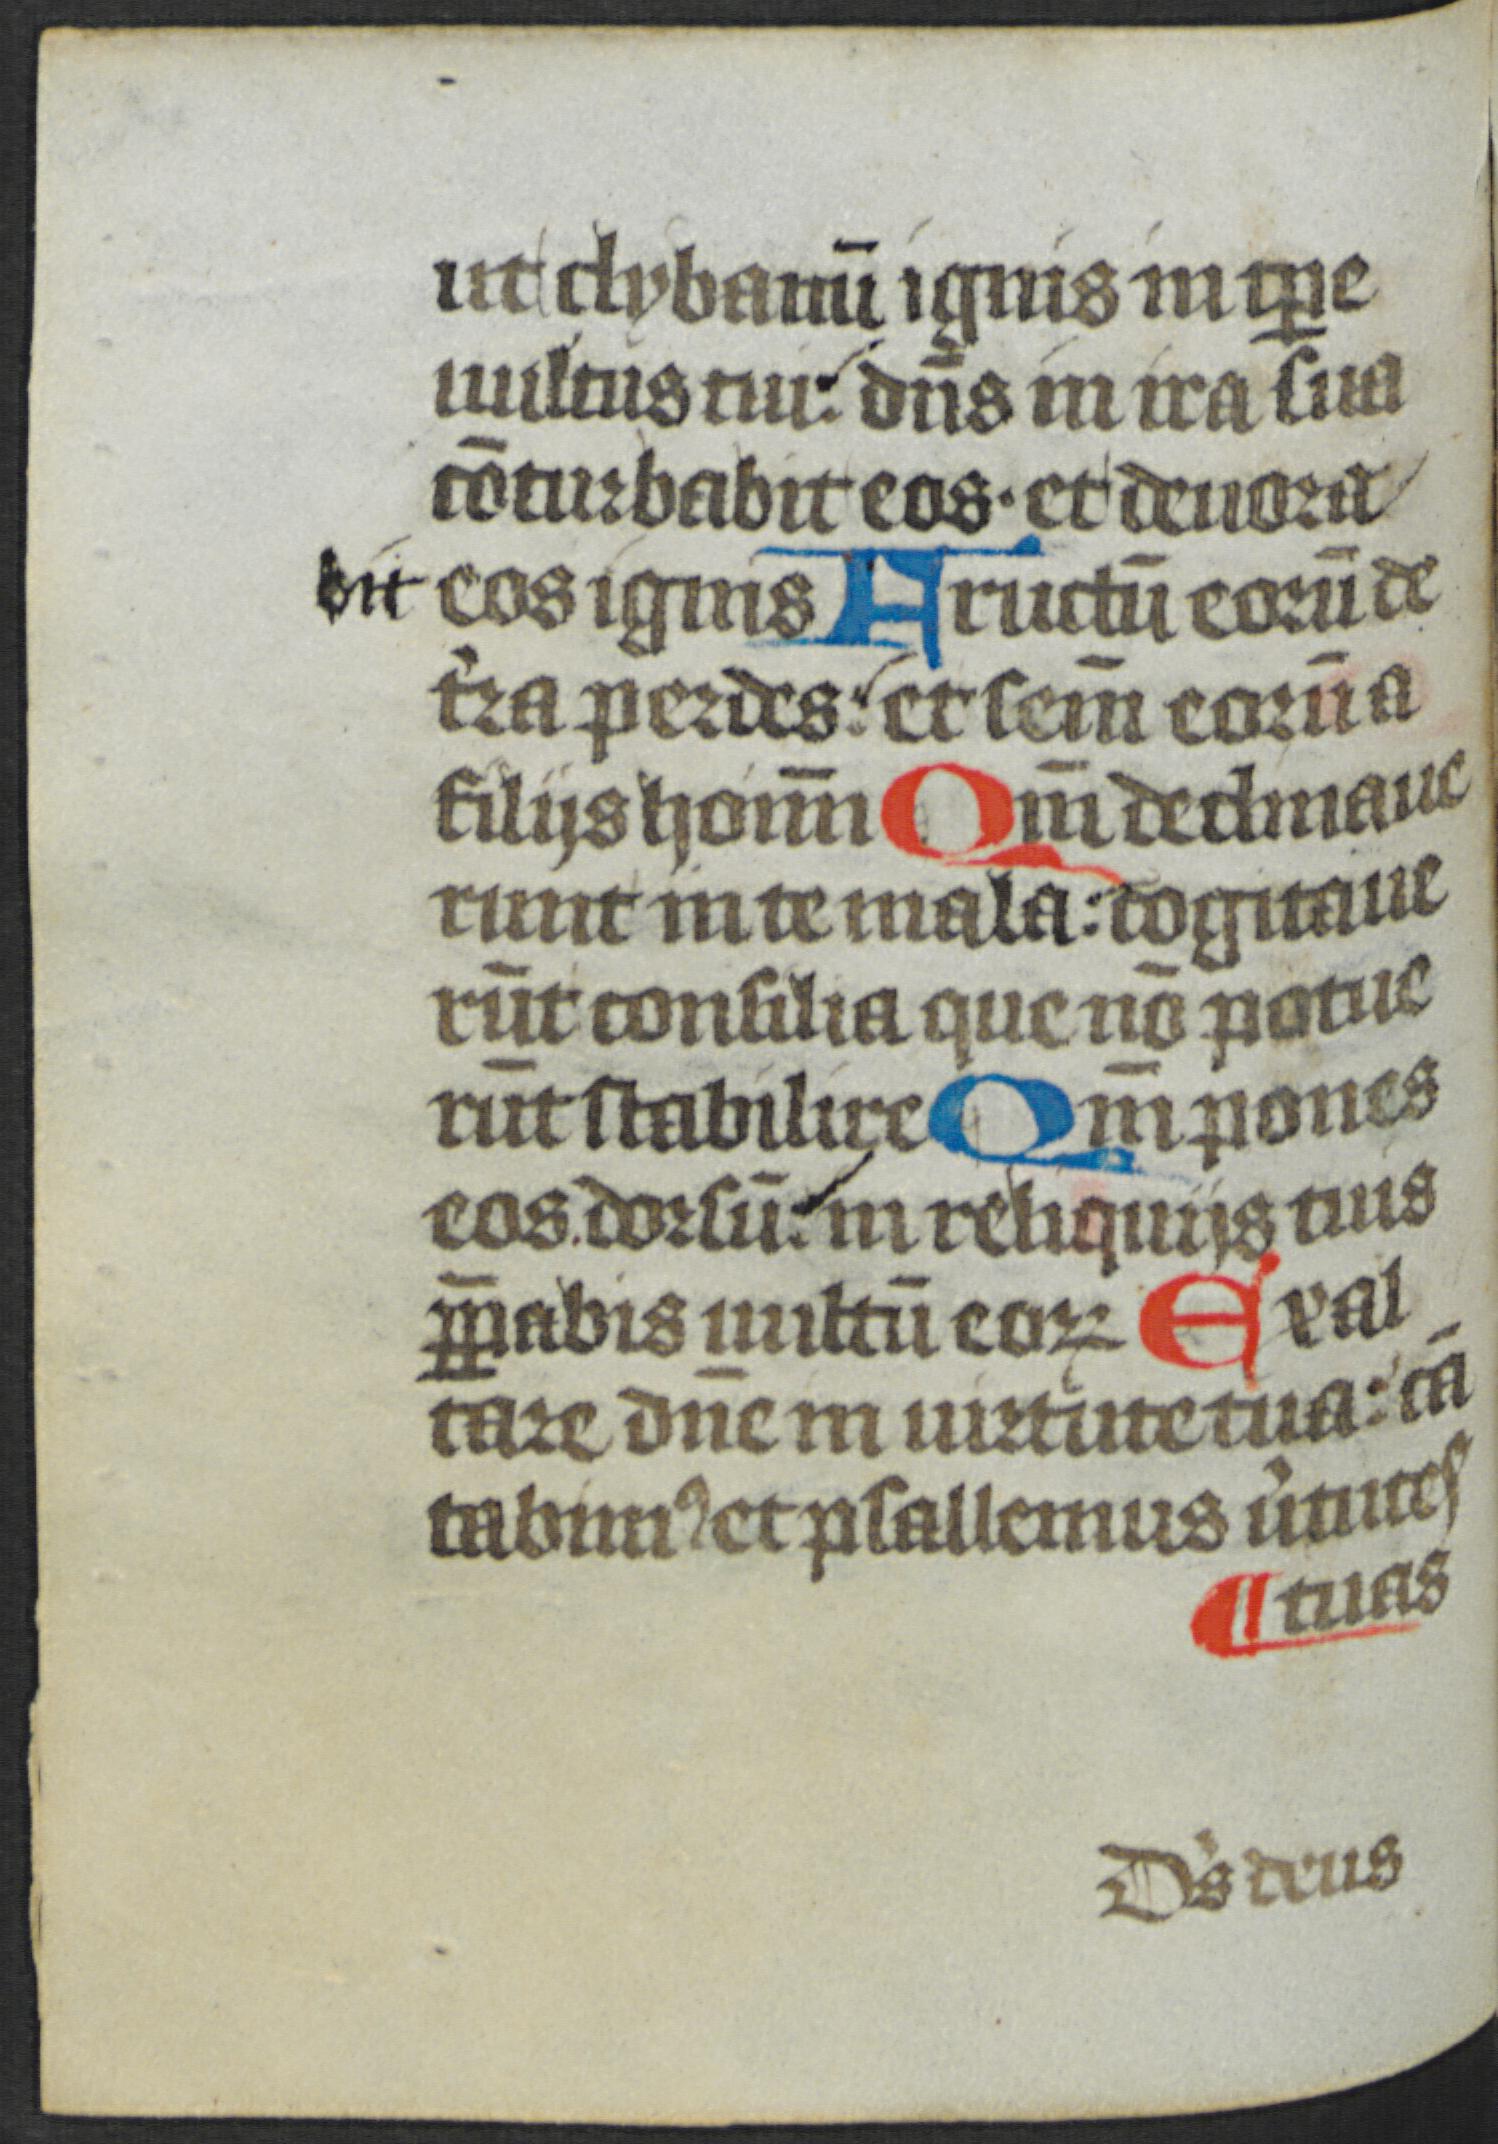 ut clybanū ignis in tp̲e
uultus tui: dn̄s in ira sua
cōturbabit eos · et deuora
bit eos ignis Aructū eorū de
t'ra perdes: et sem̄ eorū a
filijs hoım̄ Qm̄ declinaue
runt in te mala: cogitaue
rūt consilia que nō potue
rūt stabilire Qm̄ pones
eos dorsū: in reliquijs tuis
p̲p̄abis uultū eoꝝ Exal
tare dn̄e in uirtute tua: cā
tabimꝰ et psallemus u'tutes
¶ tuas
D's deus